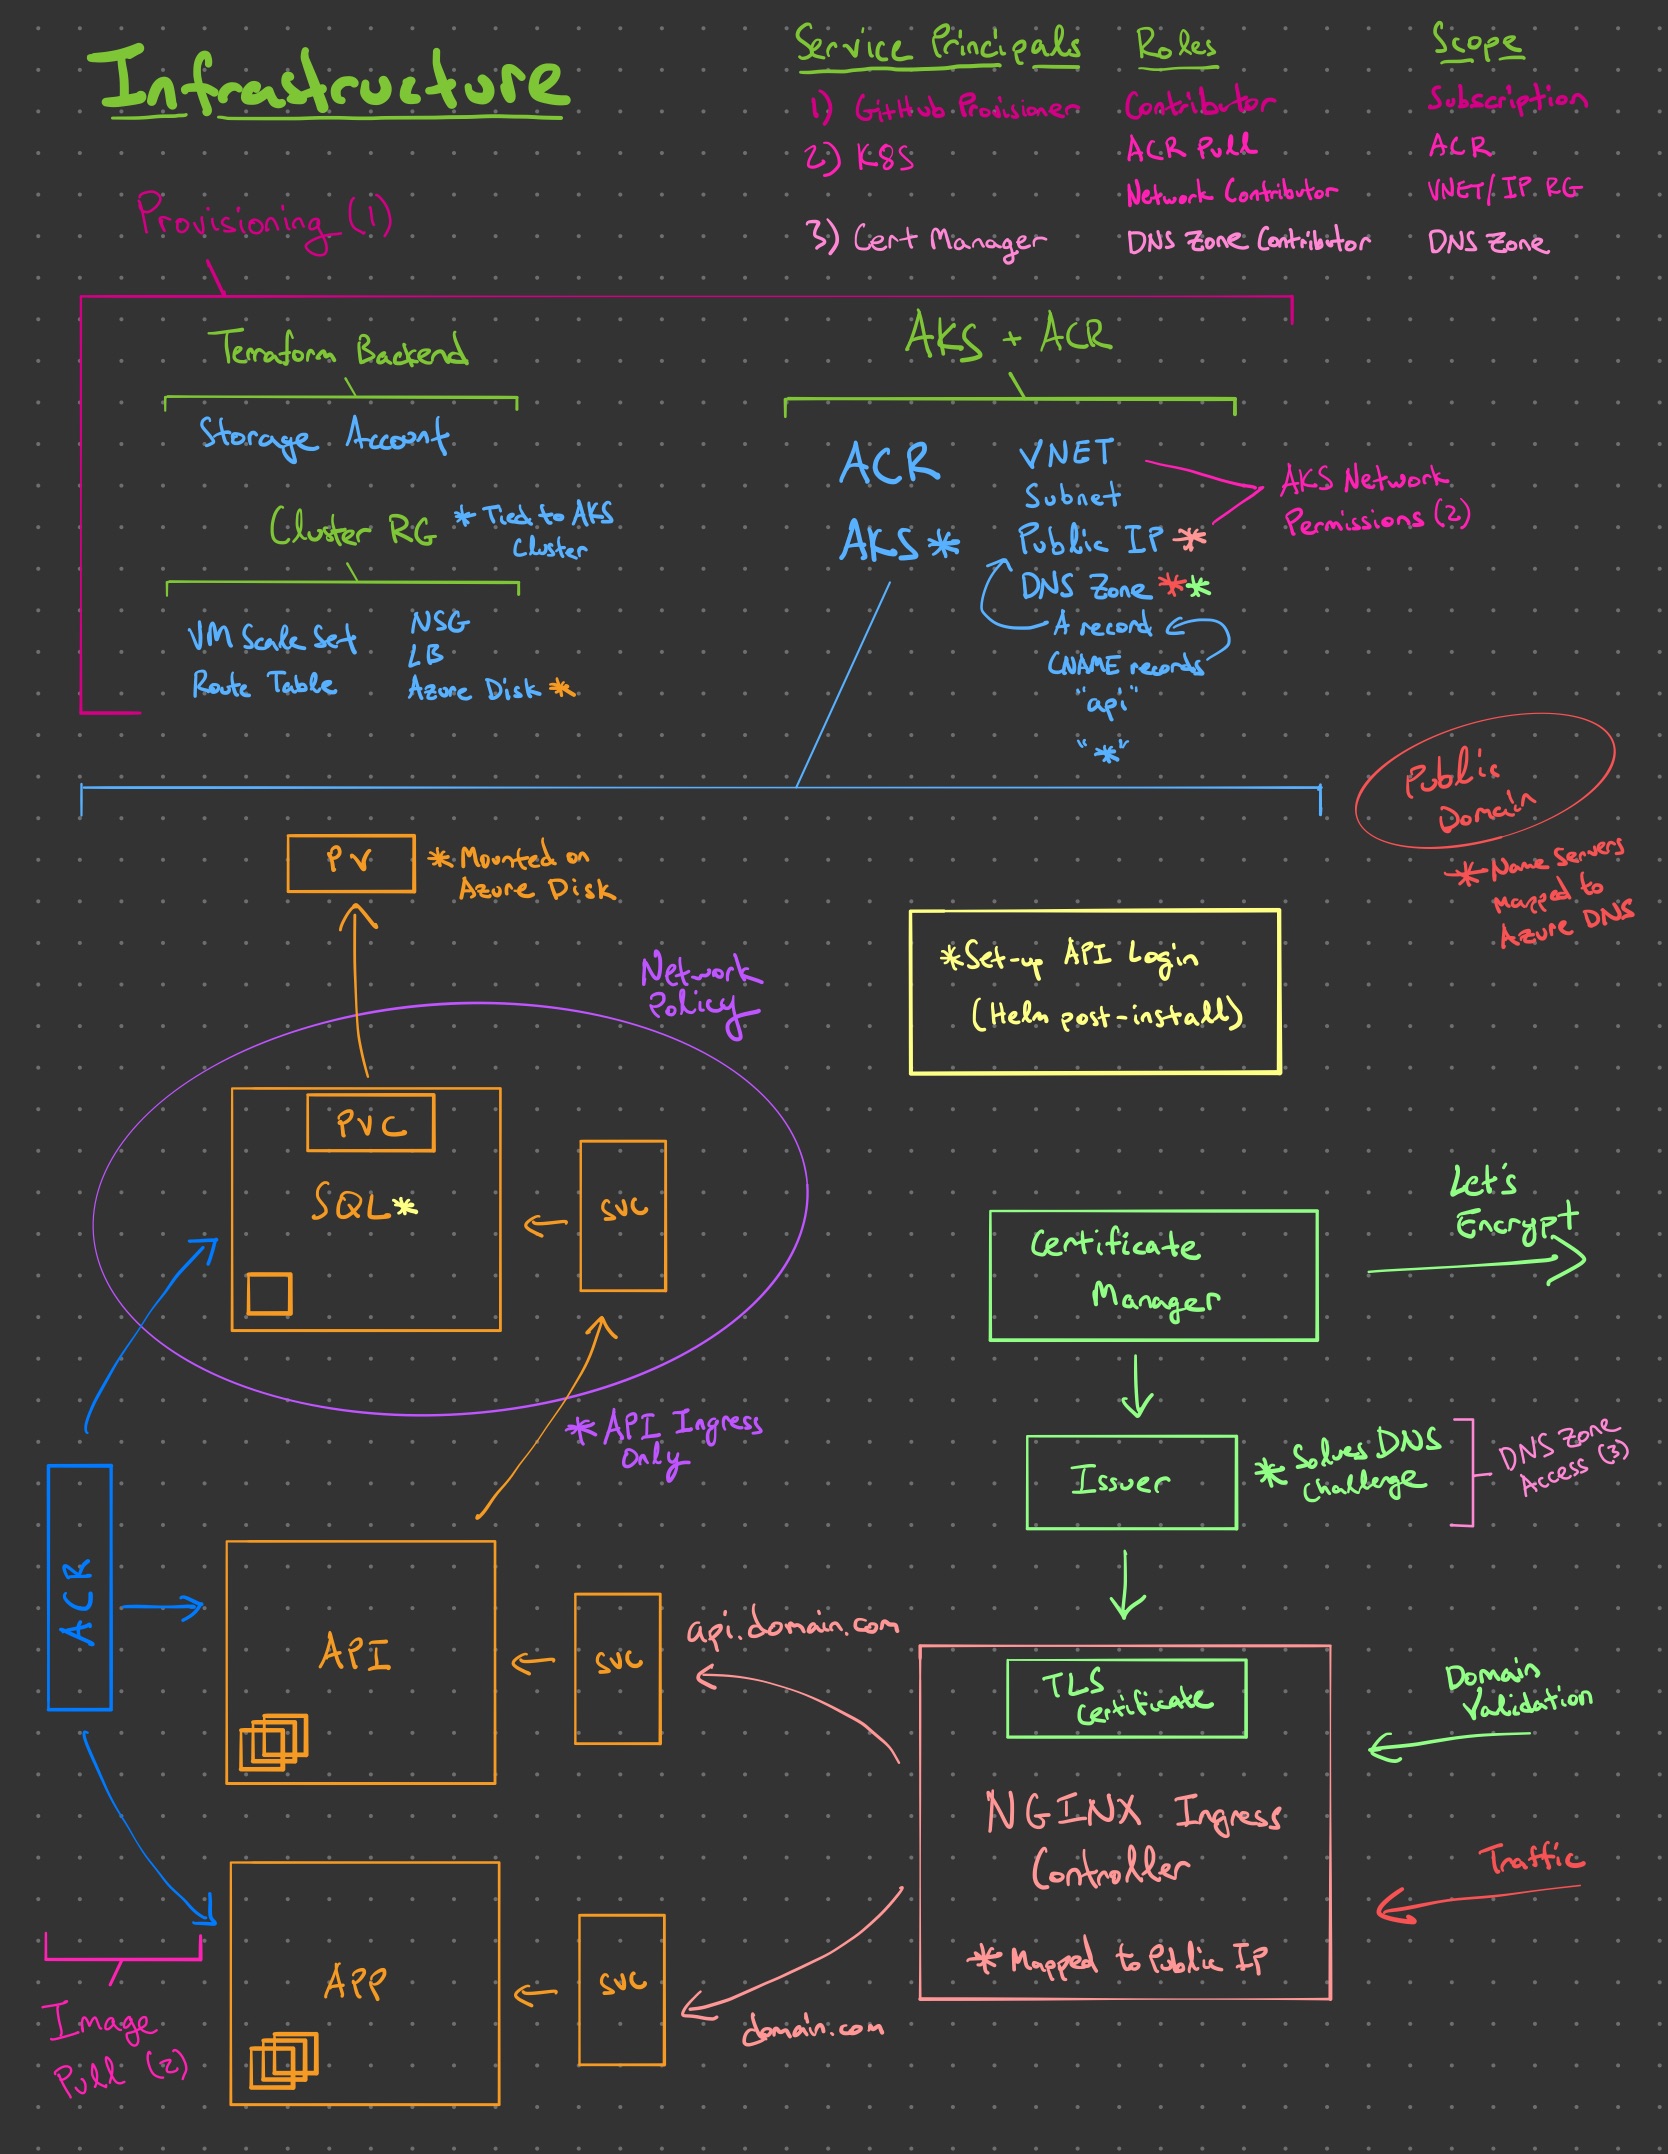 Infrastructure
Service Principals Roles Scope
1) GitHub Provisioner Contributor Subscription
2) K8S ACR Pull ACR
Network Contributor VNET/IP RG
3) Cert Manager DNS Zone Contributor DNS Zone
Provisioning (1)
Terraform Backend
Storage Account
Cluster RG * Tied to AKS
Cluster
VM Scale Set
Route Table
NSG
LB
Azure Disk *
AKS + ACR
ACR
AKS *
VNET
Subnet
Public IP *
DNS Zone **
A record
CNAME records
"api"
"*"
AKS Network
Permissions (2)
Public
Domain
* Name Servers
Mapped to
Azure DNS
PV
* Mounted on
Azure Disk
Network
Policy
*Set-up API Login
(Helm post-install)
PVC
SQL*
SVC
* API Ingress
Only
Certificate
Manager
Let's
Encrypt
Issuer
* Solves DNS
Challenge
DNS Zone
Access (3)
ACR
API
SVC
api.domain.com
TLS
Certificate
Domain
Validation
NGINX Ingress
Controller
* Mapped to Public IP
Traffic
APP
SVC
domain.com
Image
Pull (2)